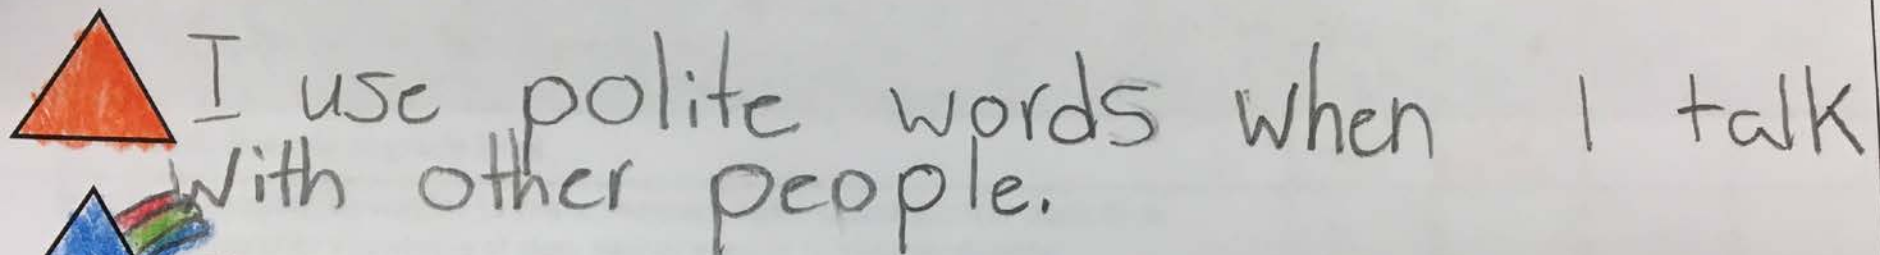 I use polite words when I talk
with other people.